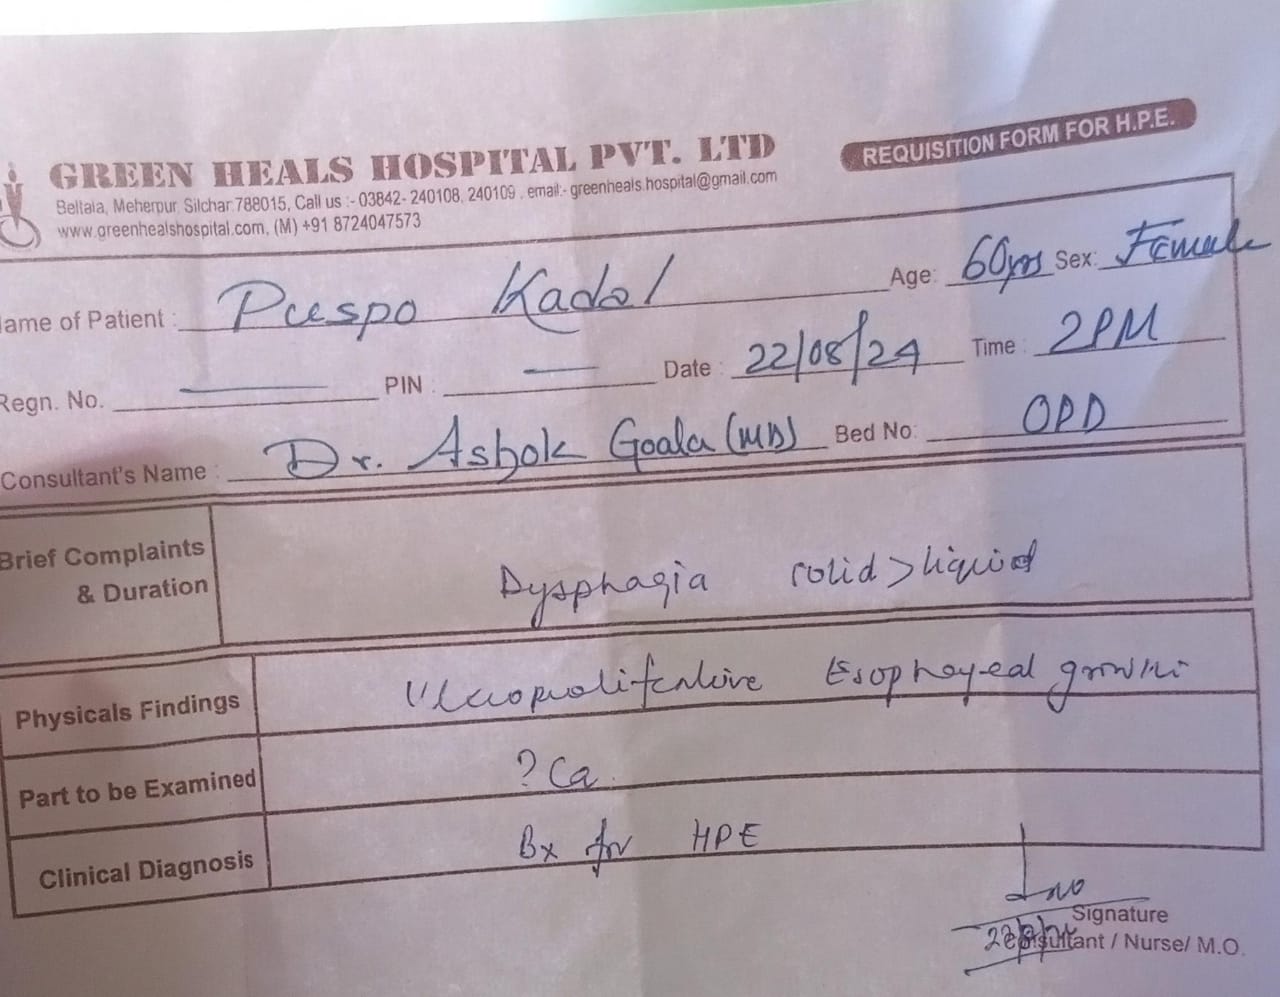 REQUISITION FORM FOR H.P.E.
GREEN HEALS HOSPITAL PVT. LTD
Beltala, Meherpur, Silchar.788015, Call us :- 03842- 240108, 240109 , email:- greenheals.hospital@gmail.com
www.greenhealshospital.com, (M) +91 8724047573
ame of Patient : Puspo Kadol Age: 60yrs Sex: Female
Regn. No. — PIN : — Date : 22/08/24 Time : 2PM
Consultant's Name : Dr. Ashok Goala (MD) Bed No: OPD
Brief Complaints
& Duration
Dysphagia solid > liquid
Physicals Findings Ulceroproliferative Esophageal growth
Part to be Examined ? Ca.
Clinical Diagnosis Bx for HPE
Signature
Consultant / Nurse/ M.O.